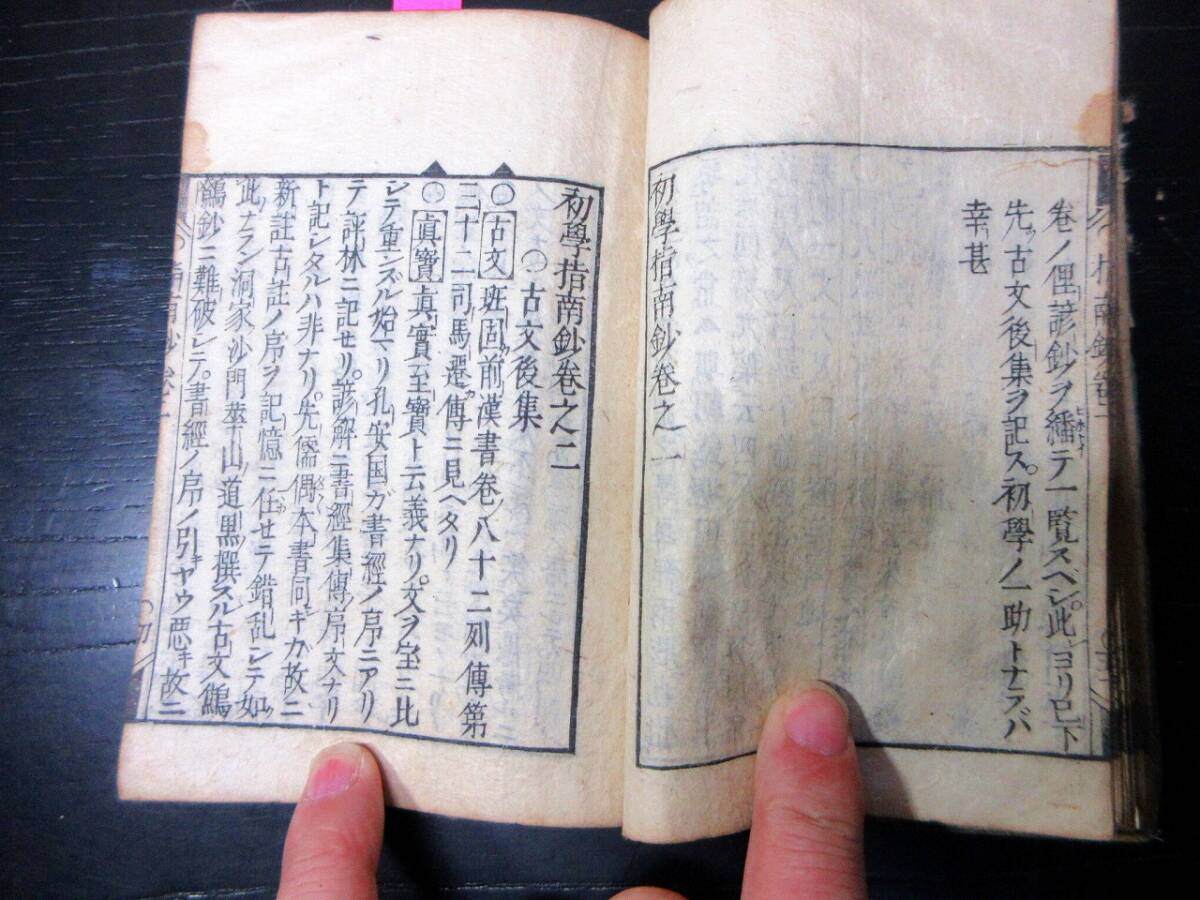 卷ノ俚諺鈔ヲ繙テ一覧スベシ此ヨリ已下
先ッ古文後集ヲ記ス初學ノ一助トナラバ
幸甚
初學指南鈔卷之一
初學指南鈔卷之二
古文後集
古文 班固前漢書卷ノ八十二列傳第
三十二司馬遷ガ傳ニ見ヘタリ
眞寶 眞實至寶ト云義ナリ文ヲ宝ニ比
シテ重ンズル始リ孔安国ガ書經ノ序ニアリ
テ評林ニ記セリ諺解ニ書經集傳ノ序文ナリ
ト記シタルハ非ナリ先儒偶本書同キガ故ニ
新註古註ノ序ヲ記憶ニ任セテ錯乱シテ如ッ
此ナラン洞家沙門華山道黒撰スル古文鷦
鷯鈔ニ難破シテ書經ノ序ノ引キヤウ悪キ故ニ